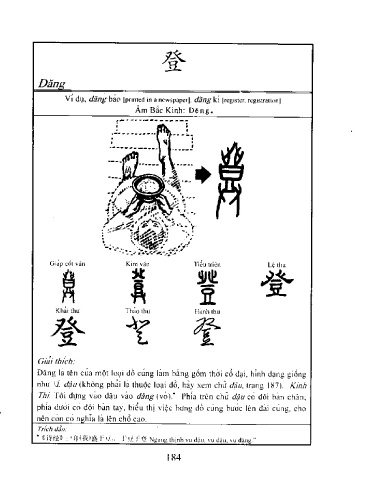 登
Đăng
Ví dụ, đăng báo [printed in a newspaper], đăng kí [register, registration]
Âm Bắc Kinh: Dēng.
Giáp cốt văn Kim văn Tiểu triện Lệ thư
Khải thư Thảo thư Hành thư
Giải thích:
Đăng là tên của một loại đồ cúng làm bằng gốm thời cổ đại, hình dáng giống
như đậu (không phải là thuộc loại đỗ, hãy xem chữ đậu, trang 187). Kinh
Thi "Tôi đựng vào đậu vào đăng (vò)." Phía trên chữ đậu có đôi bàn chân,
phía dưới có đôi bàn tay, biểu thị việc bưng đồ cúng bước lên đài cúng, cho
nên còn có nghĩa là lên chỗ cao.
Trích dẫn:
盛于豆, 于豆于登 Ngang thịnh vu đậu, vu đậu, vu đăng."
184